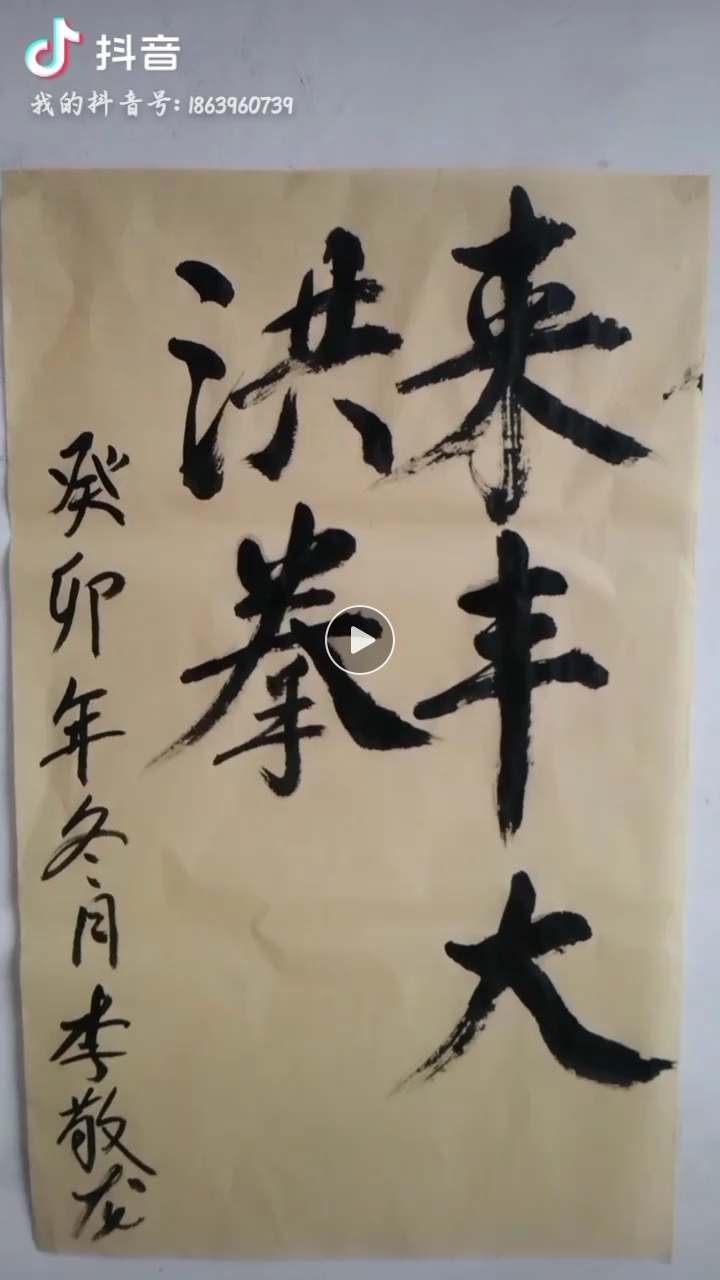 抖音
我的抖音号: 1863960739
来丰大
洪拳
癸卯年冬月李敬龙